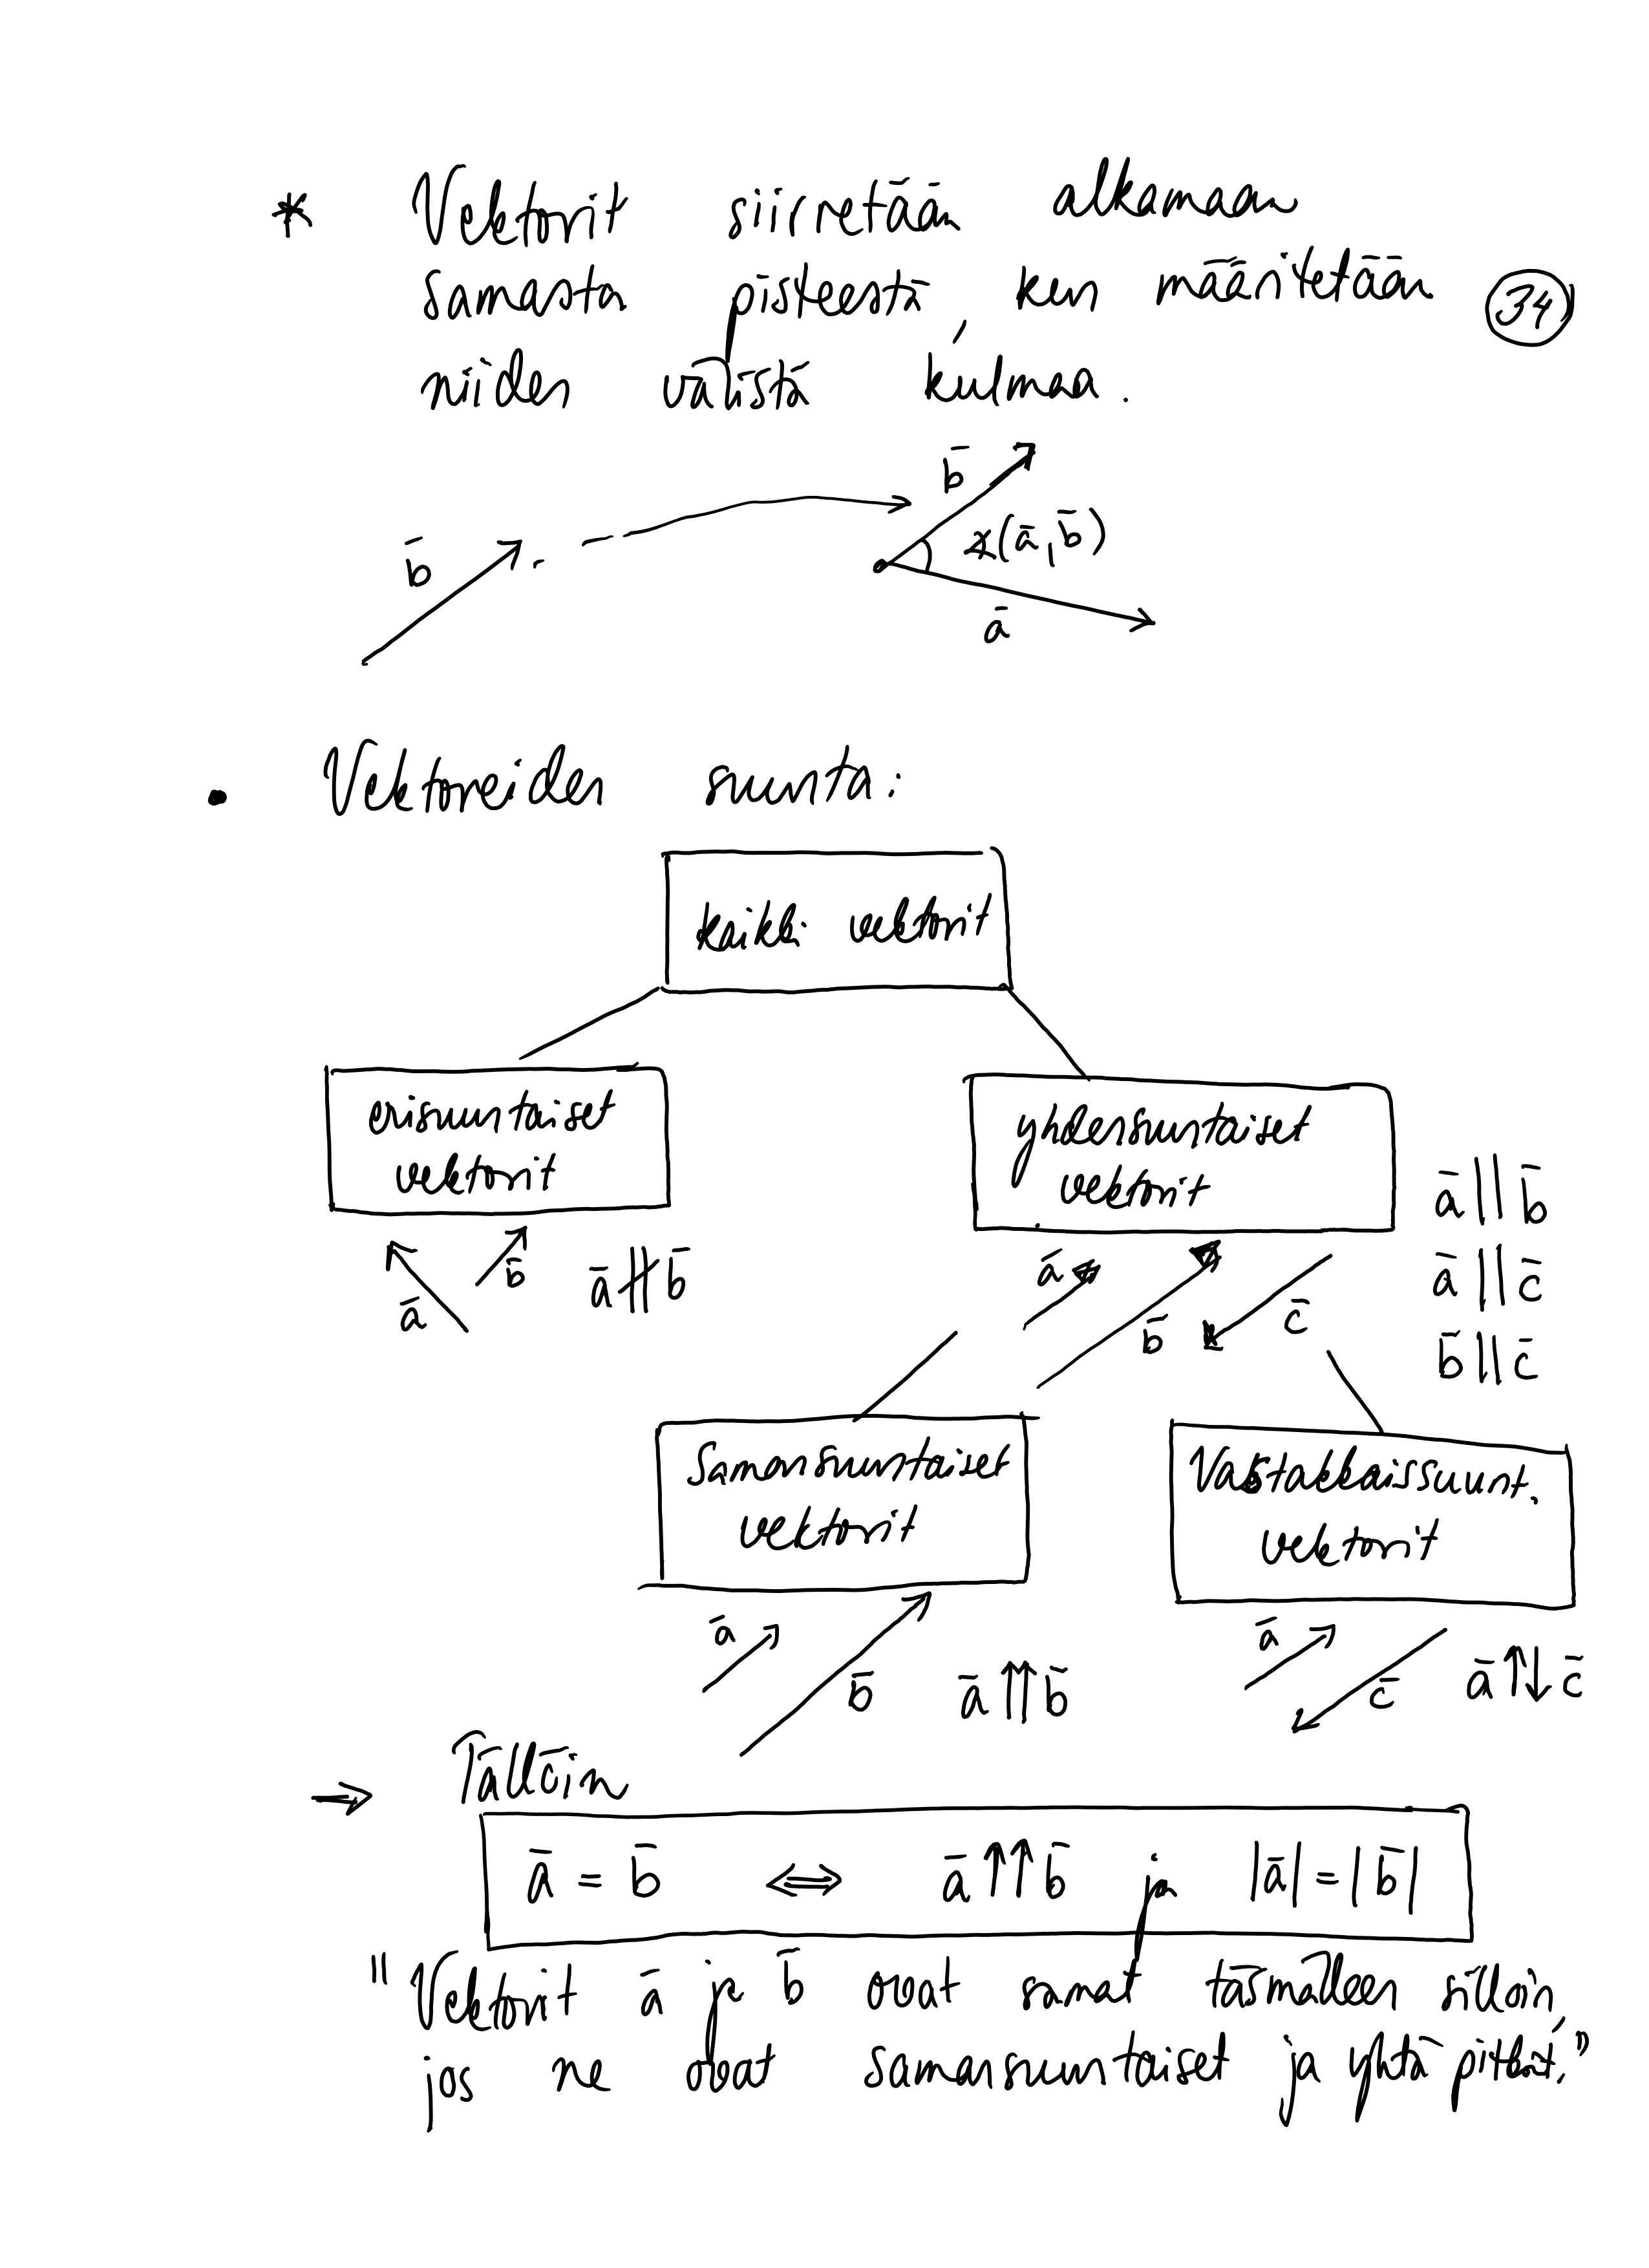 * Vektorit siirretään alkamaan
samasta pisteestä, kun määritetään
34
niiden välistä kulmaa.
b̄
b̄
∡(ā, b̄)
ā
• Vektoreiden suunta:
kaikki vektorit
erisuuntaiset
vektorit
yhdensuuntaiset
vektorit
ā ∦ b̄
ā
b̄
ā
b̄
c̄
ā || b̄
ā || c̄
b̄ || c̄
Samansuuntaiset
vektorit
Vastakkaissuunt.
vektorit
ā
b̄
ā ↑↑ b̄
ā
c̄
ā ↑↓ c̄
⇒ Tällöin
ā = b̄ ⇔ ā ↑↑ b̄ ja |ā| = |b̄|
"Vektorit ā ja b̄ ovat samat täsmälleen silloin,
jos ne ovat samansuuntaiset ja yhtä pitkät."